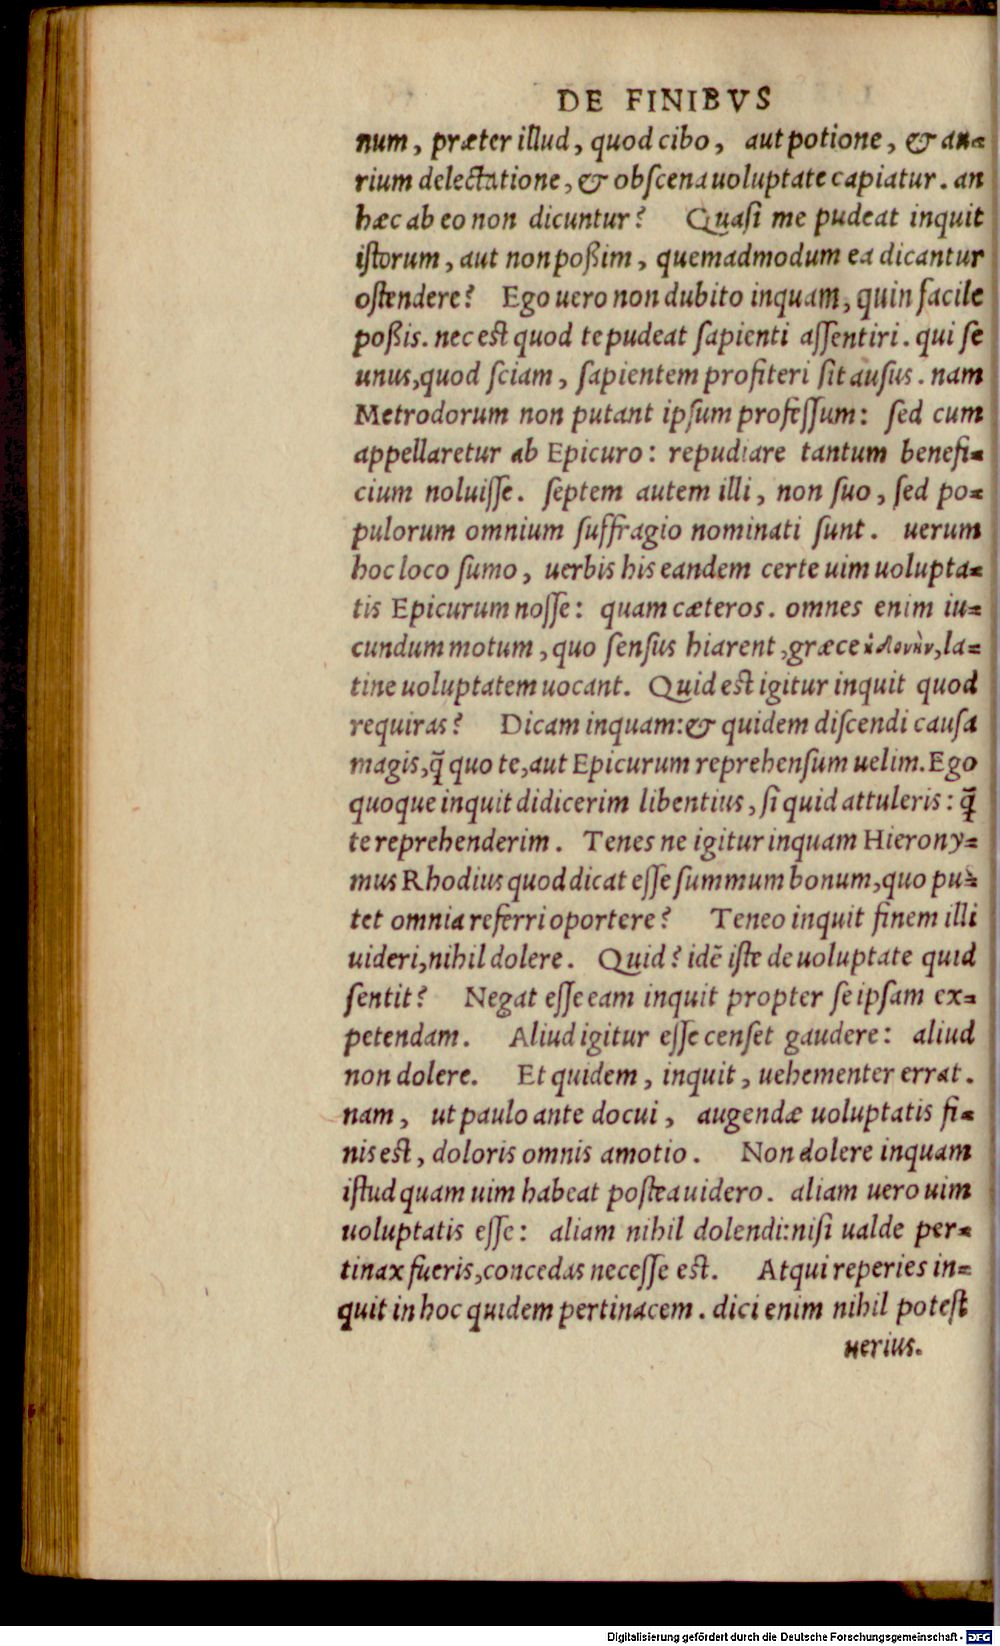 DE FINIBVS
num, præter illud, quod cibo, aut potione, & au=
rium delectatione, & obſcena uoluptate capiatur. an
hæc ab eo non dicuntur? Quaſi me pudeat inquit
iſtorum, aut non poßim, quemadmodum ea dicantur
oſtendere? Ego uero non dubito inquam, quin facile
poßis. nec eſt quod te pudeat ſapienti aſſentiri. qui ſe
unus, quod ſciam, ſapientem profiteri ſit auſus. nam
Metrodorum non putant ipſum profeſſum: ſed cum
appellaretur ab Epicuro: repudiare tantum benefi=
cium noluiſſe. ſeptem autem illi, non ſuo, ſed po=
pulorum omnium ſuffragio nominati ſunt. uerum
hoc loco ſumo, uerbis his eandem certe uim uolupta=
tis Epicurum noſſe: quam cæteros. omnes enim iu=
cundum motum, quo ſenſus hiarent, græce ἡδονὴν, la=
tine uoluptatem uocant. Quid eſt igitur inquit quod
requiras? Dicam inquam: & quidem diſcendi cauſa
magis, q̃ quo te, aut Epicurum reprehenſum uelim. Ego
quoque inquit didicerim libentius, ſi quid attuleris: q̃
te reprehenderim. Tenes ne igitur inquam Hierony=
mus Rhodius quod dicat eſſe ſummum bonum, quo pu=
tet omnia referri oportere? Teneo inquit finem illi
uideri, nihil dolere. Quid? idẽ iſte de uoluptate quid
ſentit? Negat eſſe eam inquit propter ſe ipſam ex=
petendam. Aliud igitur eſſe cenſet gaudere: aliud
non dolere. Et quidem, inquit, uehementer errat.
nam, ut paulo ante docui, augendæ uoluptatis fi=
nis eſt, doloris omnis amotio. Non dolere inquam
iſtud quam uim habeat poſtea uidero. aliam uero uim
uoluptatis eſſe: aliam nihil dolendi: niſi ualde per=
tinax fueris, concedas neceſſe eſt. Atqui reperies in=
quit in hoc quidem pertinacem. dici enim nihil poteſt
uerius.
Digitalisierung gefördert durch die Deutsche Forschungsgemeinschaft - DFG